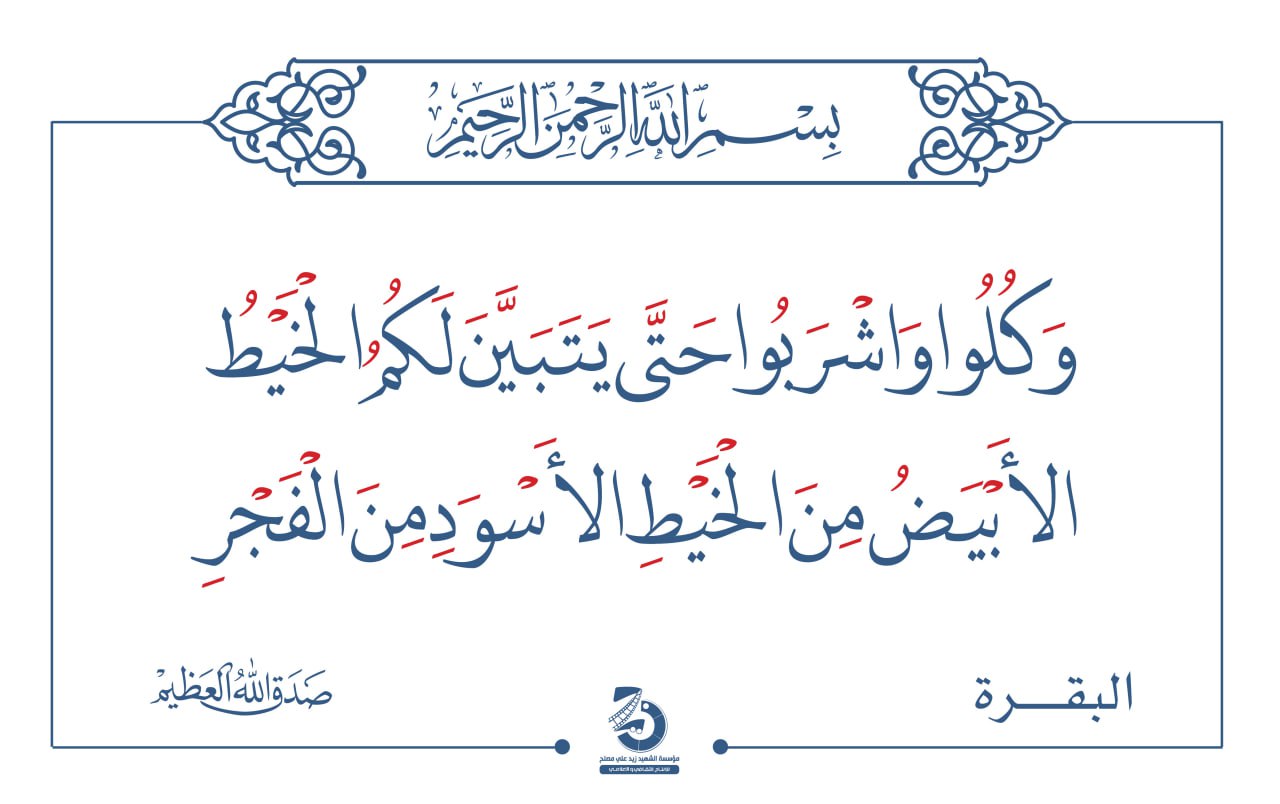 بِسْمِ اللَّهِ الرَّحْمَٰنِ الرَّحِيمِ
وَكُلُوا وَاشْرَبُوا حَتَّى يَتَبَيَّنَ لَكُمُ الْخَيْطُ
الأَبْيَضُ مِنَ الْخَيْطِ الأَسْوَدِ مِنَ الْفَجْرِ
البقـرة
صَدَقَ اللهُ العَظِيمْ
مؤسسة الشهيد زيد علي مصلح
للإنتاج الثقافي والإعلامي